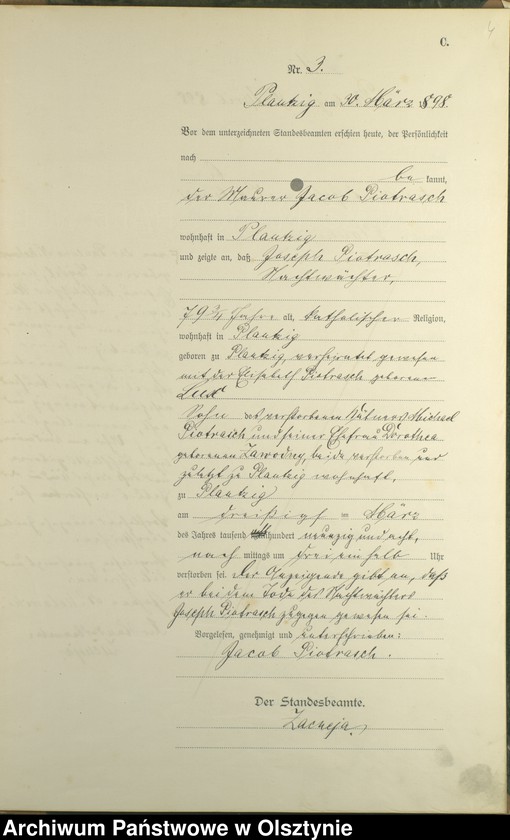 4
C.
Nr. 3.
Plautzig am 30. März 1898.
Vor dem unterzeichneten Standesbeamten erschien heute, der Persönlichkeit
nach
be kannt,
der Maurer Jacob Piotrasch
wohnhaft in Plautzig
und zeigte an, daß Joseph Piotrasch,
Nachtwächter,
79 3/4 Jahre alt, katholischer Religion,
wohnhaft in Plautzig
geboren zu Plautzig, verheiratet gewesen
mit der Elisabeth Piotrasch geborenen
Lux
Sohn des verstorbenen Kätners Michael
Piotrasch und seiner Ehefrau Dorothea
geborenen Zawodny, beide verstorben und
zuletzt zu Plautzig wohnhaft,
zu Plautzig
am dreißigsten März
des Jahres tausend achthundert neunzig und acht,
nach mittags um drei einhalb Uhr
verstorben sei. Der Anzeigende gibt an, daß
er bei dem Tode des Nachtwächters
Joseph Piotrasch zugegen gewesen sei.
Vorgelesen, genehmigt und unterschrieben:
Jacob Piotrasch.
Der Standesbeamte.
Zacheja.
Archiwum Państwowe w Olsztynie